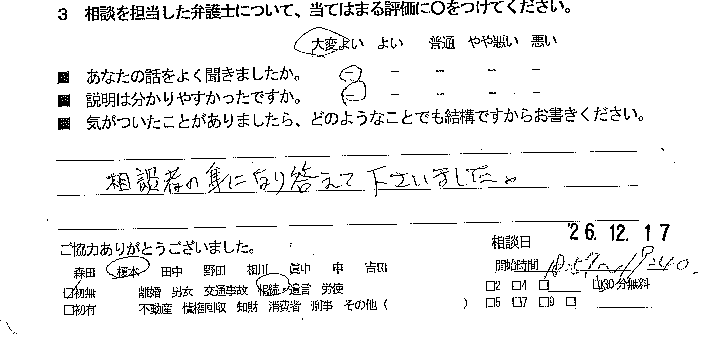 3 相談を担当した弁護士について、当てはまる評価に〇をつけてください。
大変よい よい 普通 やや悪い 悪い
■ あなたの話をよく聞きましたか。 － － － － －
■ 説明は分かりやすかったですか。 － － － － －
■ 気がついたことがありましたら、どのようなことでも結構ですからお書きください。
相談者の身になり答えて下さいました。
ご協力ありがとうございました。
相談日 '26.12.17
森田 榎本 田中 野田 相川 眞中 吉田
開始時間
□初無 離婚 男女 交通事故 相続・遺言 労使
□2 □4 □ □30分無料
□初有 不動産 債権回収 知財 消費者 刑事 その他 ( )
□5 □7 □9 □